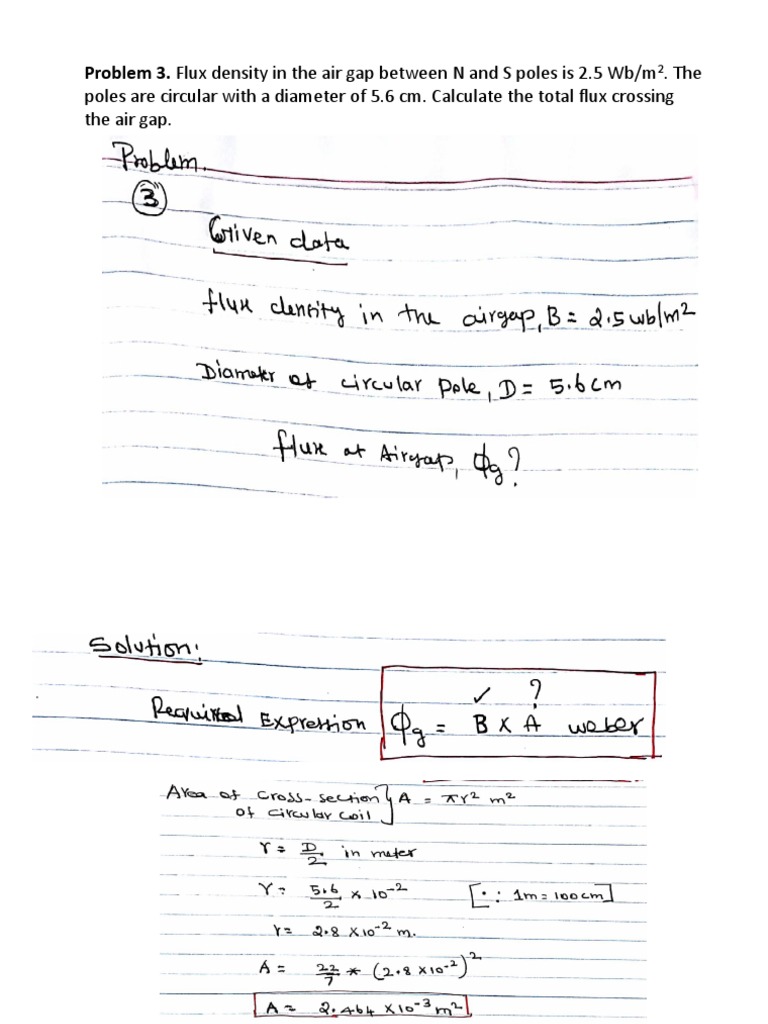 Problem 3. Flux density in the air gap between N and S poles is 2.5 Wb/m². The
poles are circular with a diameter of 5.6 cm. Calculate the total flux crossing
the air gap.
Problem.
3
Given data
flux density in the airgap, B = 2.5 wb/m²
Diameter of circular pole, D = 5.6 cm
flux at Airgap, ϕg?
Solution:
✓ ?
Required Expression ϕg = B X A weber
Area of cross-section } A = πr² m²
of circular coil
r = D/2 in meter
r = 5.6/2 × 10⁻² [∵ 1m = 100cm]
r = 2.8 × 10⁻² m.
A = 22/7 * (2.8 × 10⁻²)²
A = 2.464 × 10⁻³ m²